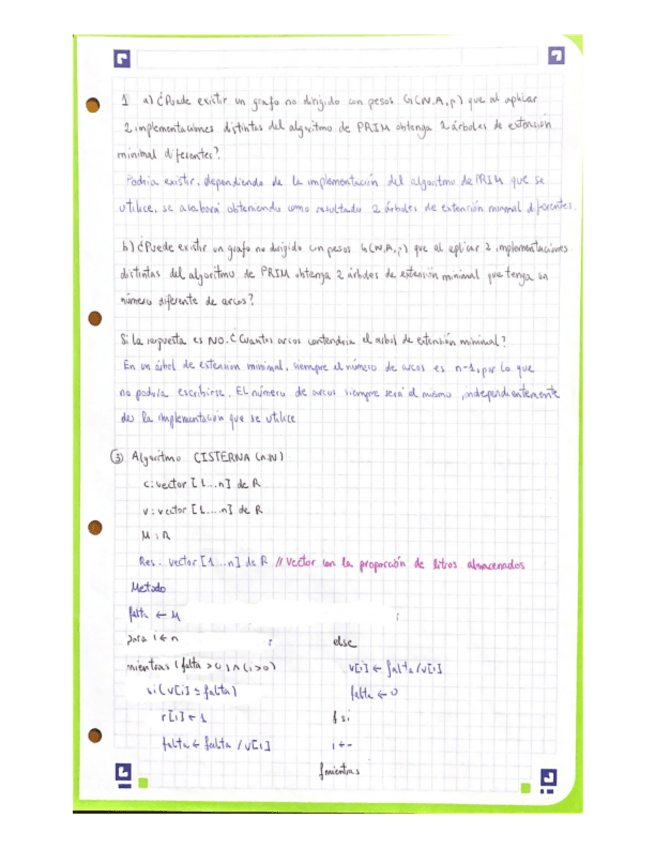 1 a) ¿Puede existir un grafo no dirigido con pesos G(N,A,p) que al aplicar
2 implementaciones distintas del algoritmo de PRIM obtenga 2 árboles de extensión
minimal diferentes?
Podria existir, dependiendo de la implementación del algoritmo de PRIM que se
utilice, se acabará obteniendo como resultado 2 árboles de extensión minimal diferentes.
b) ¿Puede existir un grafo no dirigido con pesos G(N,A,p) que al aplicar 2 implementaciones
distintas del algoritmo de PRIM obtenga 2 árboles de extensión minimal que tenga un
número diferente de arcos?
Si la respuesta es NO. ¿Cuantos arcos contendria el arbol de extensión minimal?
En un árbol de extension minimal, siempre el número de arcos es n-1, por lo que
no podria escribirse. EL número de arcos siempre será el mismo, independientemente
de la implementación que se utilice
③ Algoritmo CISTERNA (n.N)
c: vector [1...n] de R
v: vector [1...n] de R
M: R
Res: vector [1...n] de R // Vector con la proporción de litros almacenados
Metodo
falta ← M ;
para i ← n ;
mientras (falta > 0) ∧ (i > 0)
si (v[i] ≤ falta)
r[i] ← 1
falta ← falta / v[i]
else
v[i] ← falta / v[i]
falta ← 0
fsi
i ← -
fmientras